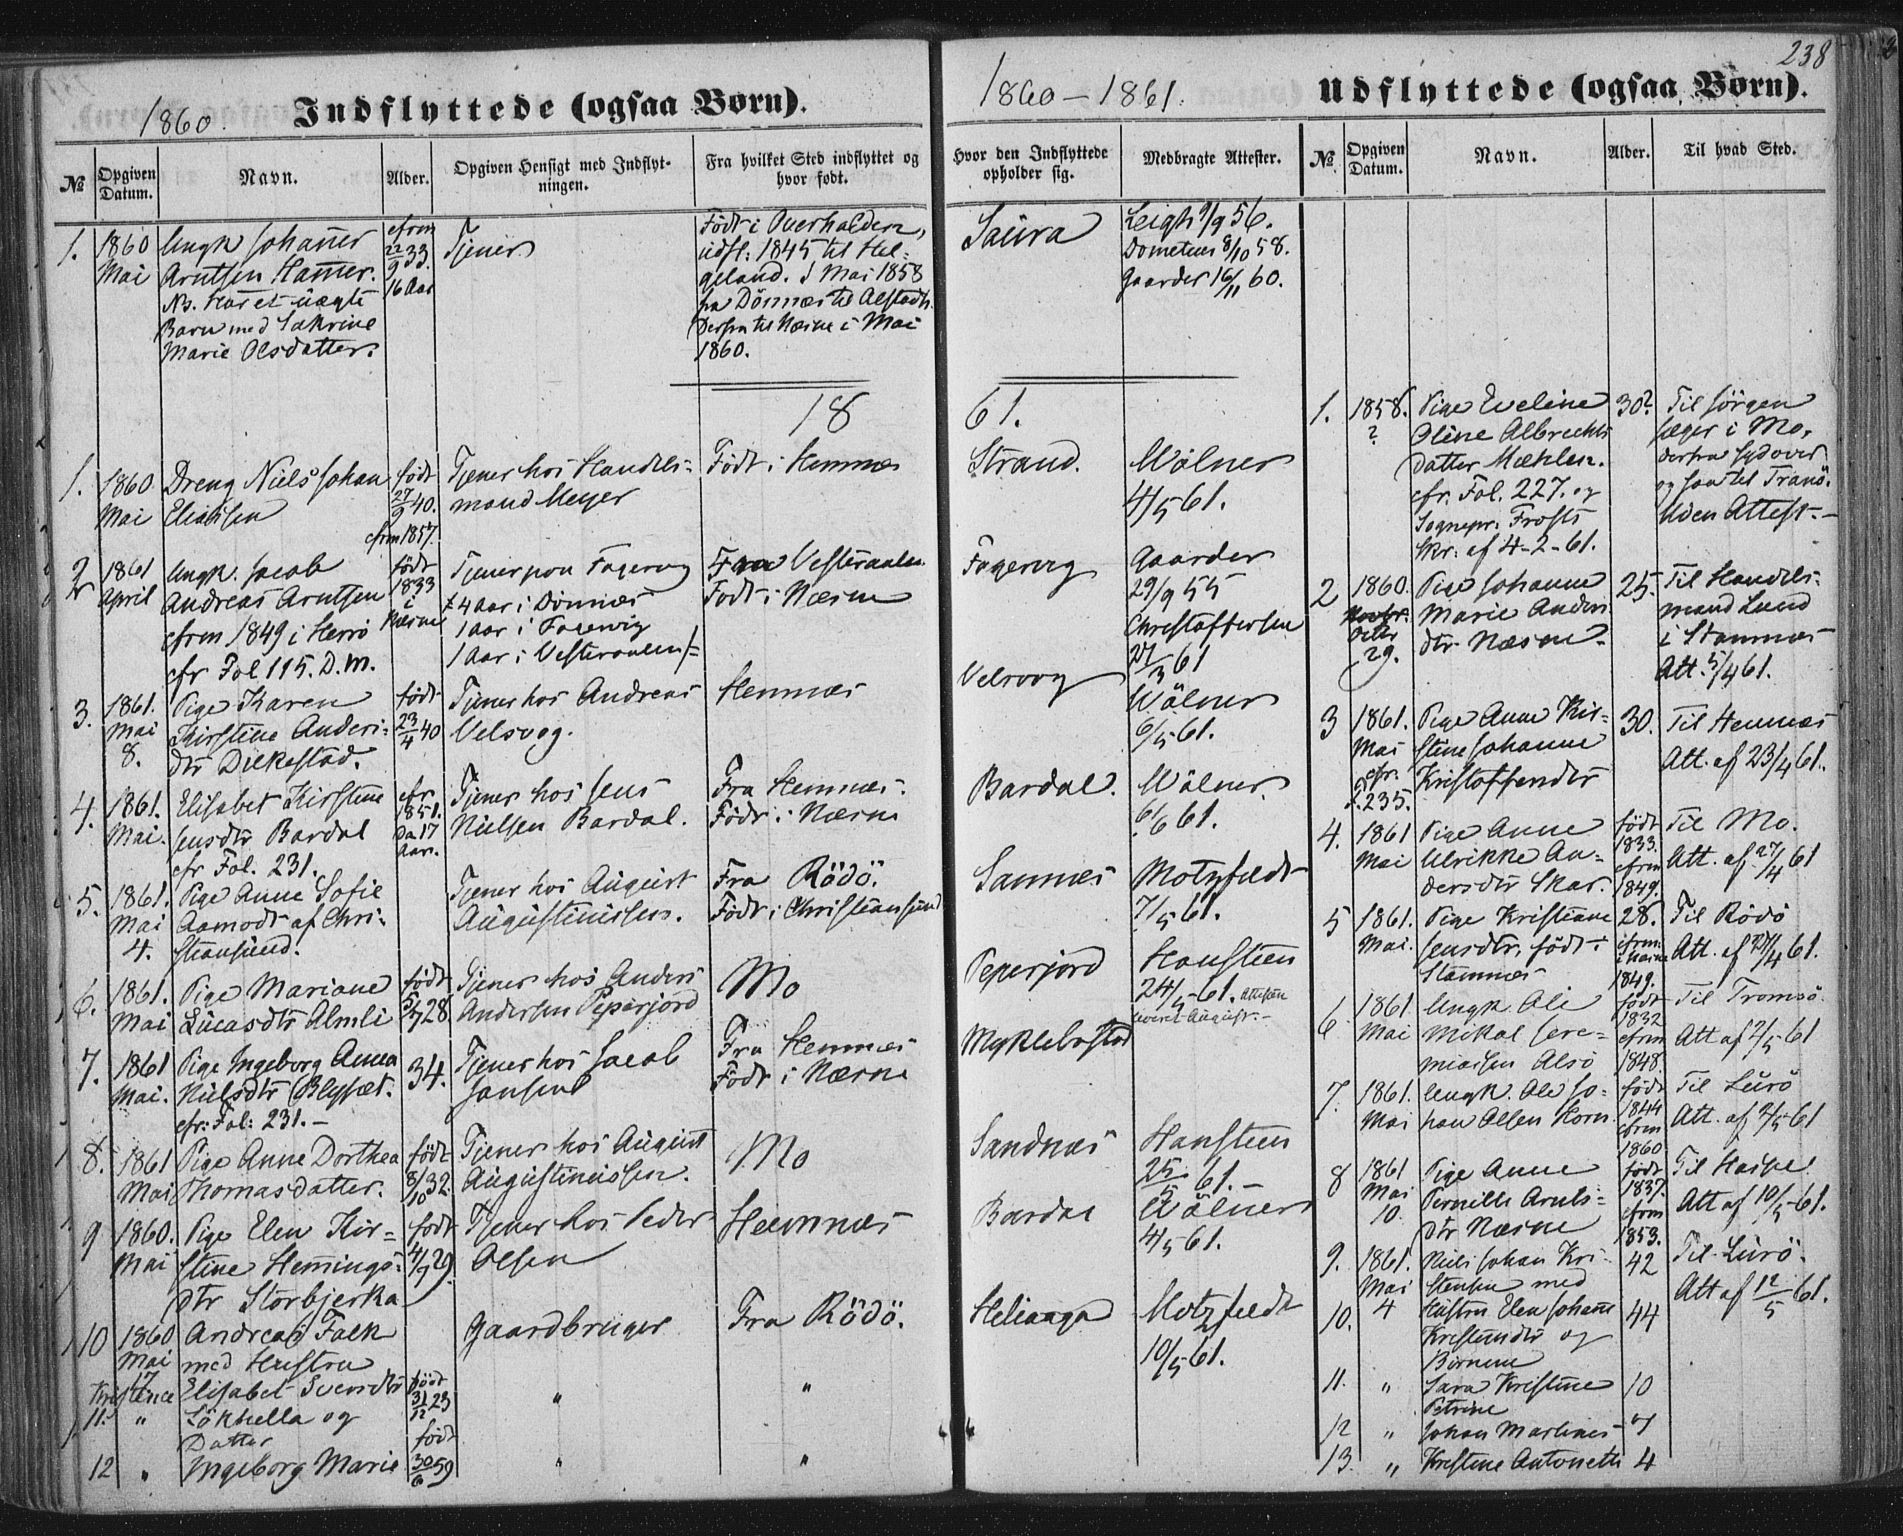 238
1860. Indflyttede (ogsaa Børn).
№
Opgiven Datum.
Navn.
Alder.
Opgiven Hensigt med Indflytningen.
Fra hvilket Sted indflyttet og hvor født.
1. 1860 Mai
Ungk Johanner
Arntsen Hamer.
Nb. Har et uægte
Barn med
Marie Olsdatter.
cfrm
22/9 33.
16 Aar
Tjener
Født i Overhalden,
udfl: 1845 til Hel-
geland. I Mai 1858
fra Dönnæs til Alstadh.
Derfra til Næsne i Mai
1860.
18
1. 1860 Mai
Dreng Niels Johan
Eliassen
født
27/9 40.
cfrm 1857.
Tjener hos Handels-
mand Meyer
Født i Hemnæs
2 1861 April
Ungk. Jacob
Andreas Arntsen
cfrm 1849 i Herrö
cfr Fol 115. D. M.
født
1833
i
Næsne
Tjener paa Fagervig
4 Aar i Dönnæs
1 Aar i Fagervig
1 Aar i Vesteraalen
Fra Vesteraalen.
Født i Næsne
3. 1861. Mai 8.
Pige Karen
Kirstine Anders-
dtr Dilkestad.
født
23/4 40
Tjener hos Andreas
Velsvog.
Hemnæs
4. 1861. Mai.
Elisabet Kirstine
Jensdtr Bardal
cfr Fol. 231.
cfr
1851.
Da 17
Aar.
Tjener hos Jens
Nielsen Bardal.
Fra Hemnæs.
Født i Næsne
5. 1861. Mai 4.
Pige Anne Sofie
Aamodt af Chri-
stiansund.
Tjener hos August
Augustinussen.
Fra Rödö.
Født i Christiansund
6. 1861. Mai
Pige Mariane
Lucasdtr Almli
født
5/7 28
Tjener hos Anders
Andersen Peperjord
Mo
7. 1861 Mai.
Pige Ingeborg Anna
Nielsdtr
cfr: Fol: 231.-
34.
Tjener hos Jacob
Jensen
Fra Hemnæs
Født i Næsne
8. 1861 Mai
Pige Anne Dorthea
Thomasdatter.
født
8/10 32.
Tjener hos August
Augustinussen.
Mo
9 1860. Mai
Pige Elen Kir-
stine Hemings-
dtr Storbjerka
født
4/5 29.
Tjener hos Peder
Olsen
Hemnæs
10 1860 Mai 17
Andreas Falk
med Hustru
Gaardbruger
Fra Rödö.
11. "
Elisabet Sversdtr
og
Datter
født
31/12 23
"
"
12 "
Ingeborg Marie
født
30/6 59
"
"
1860 – 1861. Udflyttede (ogsaa Børn).
Hvor den Indflyttede opholder sig.
Medbragte Attester.
№
Opgiven Datum.
Navn.
Alder.
Til hvad Sted.
Saura
Leigh 9/9 56.
Dometeus 8/10 58.
Gaarder 16/11 60.
61.
Strand.
Wölner
4/5 61.
Fagervig
Gaarder
29/9 55
Christoffersen
27/3 61
Velsvog
Wölner
6/5 61.
Bardal.
Wölner.
6/6 61.
Sannæs
Motzfeldt
7/5 61.
Peperjord
Hansteen
24/5 -61. Attesten
leveret August.-
Myklebostad
Sandnæs
Hansteen
25/5 61.-
Bardal
Wölner
4/5 61.
Heliaaga
Motzfeldt
10/5 61.
1. 1858. ?
Pige Eveline
Oline Albrechts
datter Mæhlen.
cfr. Fol. 227. og
Sognepr: Frosts
Skr: af 4-2-61.
30?
Til Jörgen
Jæger i Mo,
derfra Sydover
og saa til Tranö.
Uden Attest.-
2 1860. Octbr 29.
Pige Johanne
Marie Anders
dtr Næsne.
25.
Til Handels-
mand Lund
i Stamnæs
Att. 5/4 61.
3 1861. Mai cfr. f. 235.
Pige Anne Kir-
stine Johanne
Kristoffersdtr
30.
Til Hemnæs
Att. af 23/4 61.
4. 1861 Mai
Pige Anne
Ulrikke An-
dersdtr Skar.
født
1833.
cfrm
1849.
Til Mo.
Att. af 27/4 61
5 1861. Mai.
Pige Kristiane
Jensdtr, født i
Stamnæs
28.
cfrm.
i Næsne
1849.
Til Rödö
Att. af 27/4 61.
6 1861 Mai
Ungk Ole
Mikal Jere-
miasen Alsö
født
1832
cfrm
1848.
Til Tromsö.
Att af 2/5 61
7. 1861. Mai
Ungk. Ole Jo-
han Olsen Horn.
født
1844
cfrm
1860
Til Lurö
Att. af 2/5 61
8 1861 Mai 10.
Pige Anne
Pernille Arnts-
dtr Næsne
født
1837.
cfrm
1853.
Til
Att af 10/5 -61.
9. 1861. Mai 4
Niels Johan Kri-
stensen med
42
Til Lurö.
Att af 12/5 61.
10.
Hustru Elen Johanne
Kristensdtr og
Börnene
44
11. "
Sara Kristine
Petrine
10
12 "
Johan Martines
7
13. "
Kristine Antonette
4